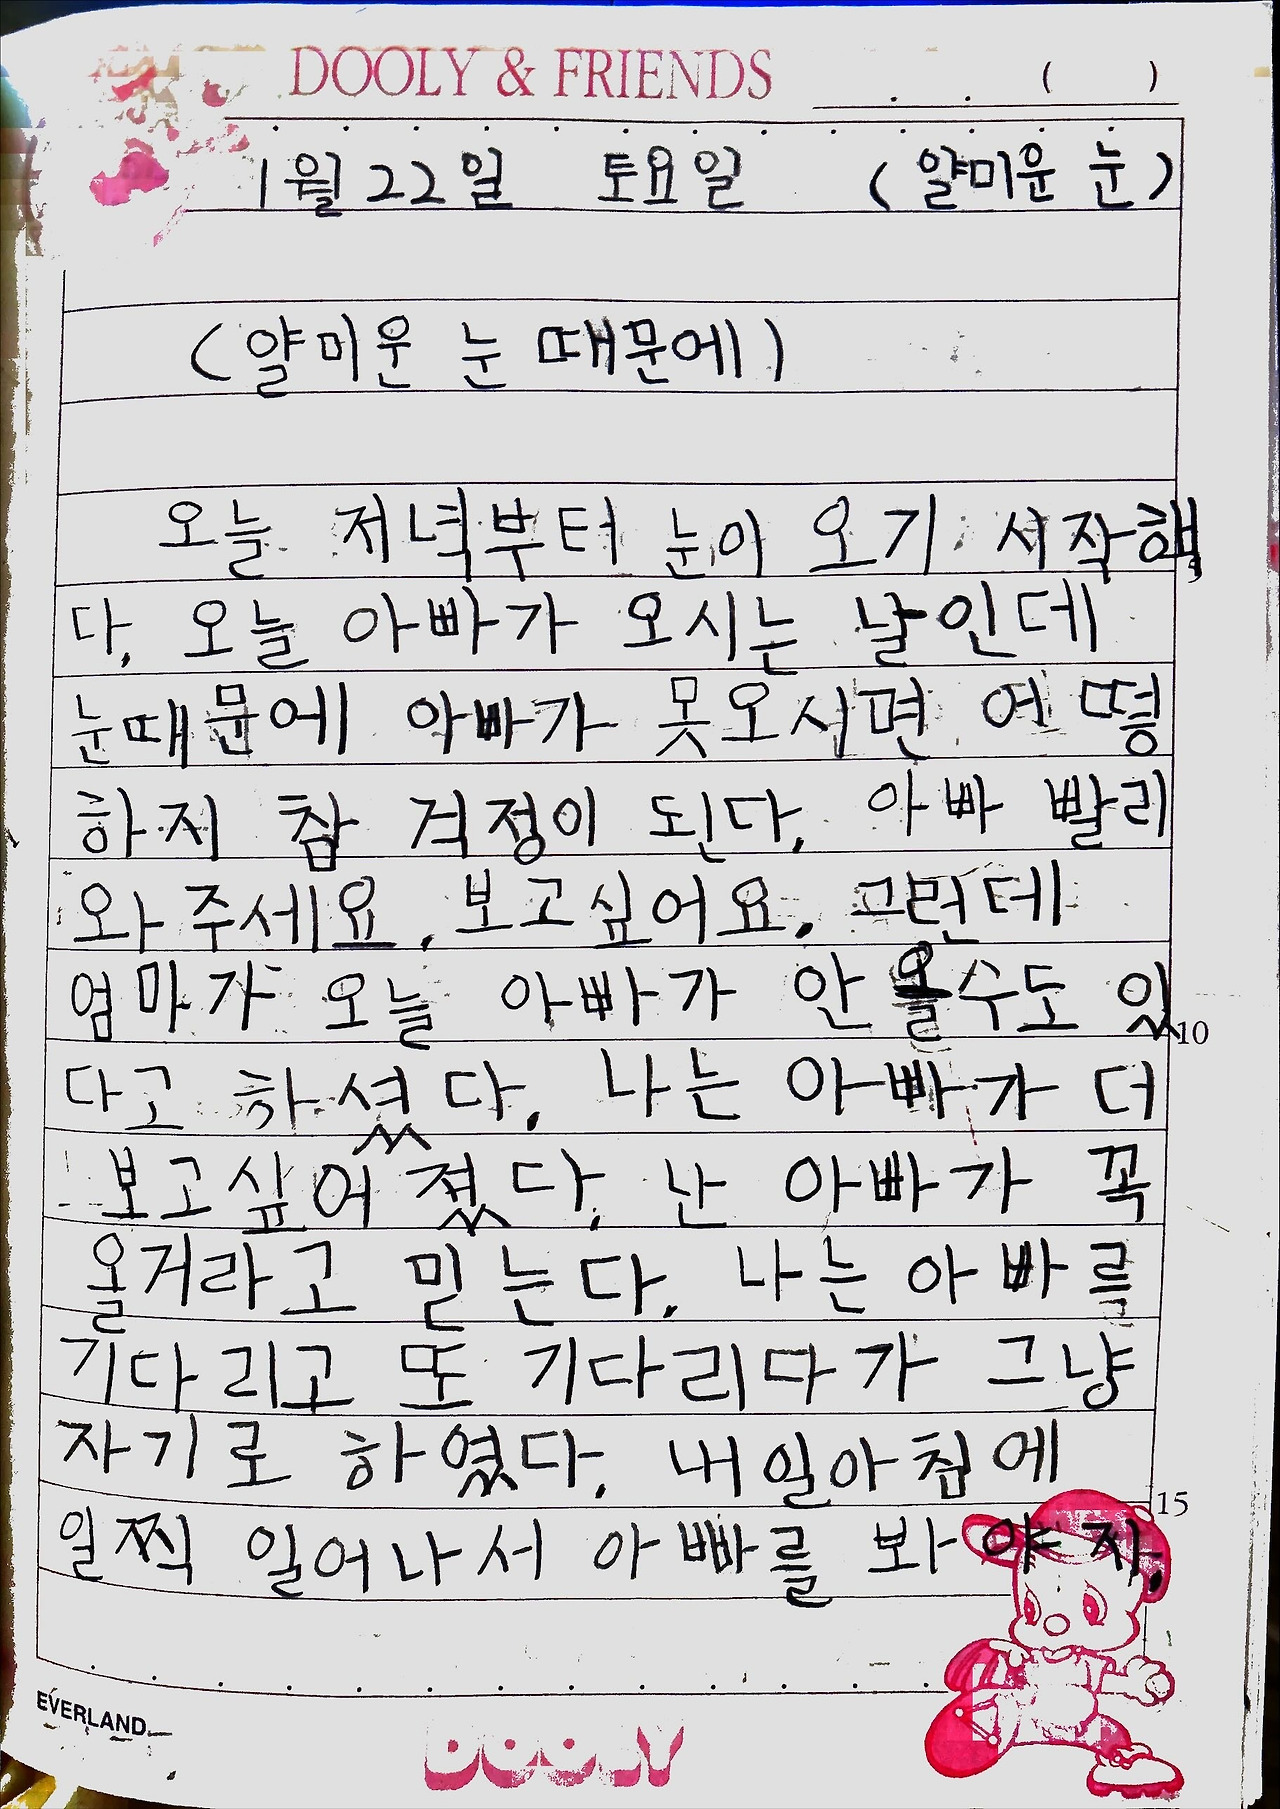 DOOLY & FRIENDS
( )
1월 22일 토요일 (얄미운 눈)
(얄미운 눈 때문에)
오늘 저녁부터 눈이 오기 시작해
5
다. 오늘 아빠가 오시는 날인데
눈때문에 아빠가 못오시면 어떻
하지 참 걱정이 된다. 아빠 빨리
와 주세요. 보고싶어요. 그런데
엄마가 오늘 아빠가 안 올수도 있
10
다고 하셨다. 나는 아빠가 더
보고싶어 졌다. 난 아빠가 꼭
올거라고 믿는다. 나는 아빠를
기다리고 또 기다리다가 그냥
자기로 하였다. 내일아침에
15
일찍 일어나서 아빠를 봐야지.
EVERLAND
DOOLY